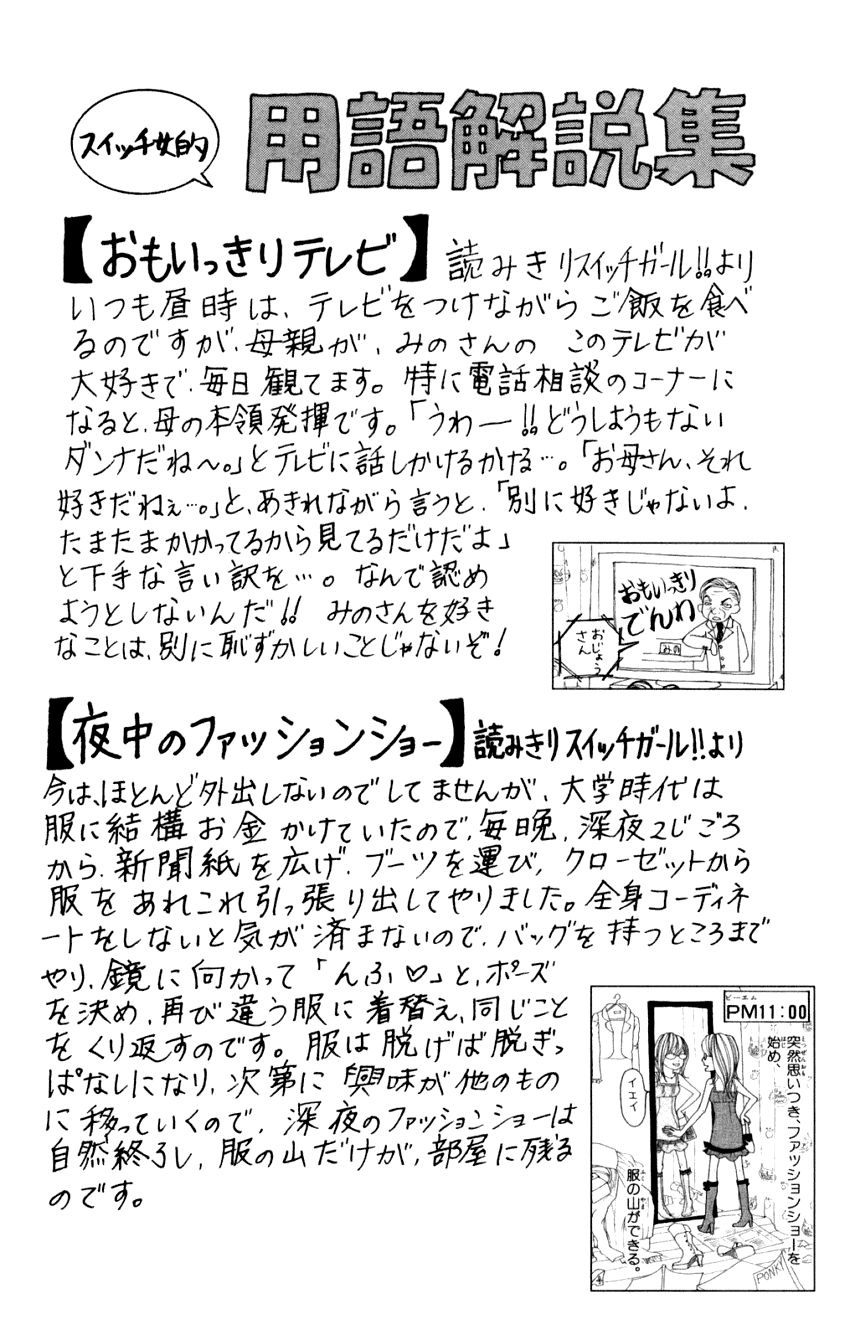 スイッチ女的
用語解説集
【おもいっきりテレビ】読みきりスイッチガール!!より
いつも昼時は、テレビをつけながらご飯を食べ
るのですが、母親が、みのさんの このテレビが
大好きで、毎日観てます。特に電話相談のコーナーに
なると、母の本領発揮です。「うわー!!どうしようもない
ダンナだね〜。」とテレビに話しかけるかける…。「お母さん、それ
好きだねぇ…。」と、あきれながら言うと、「別に好きじゃないよ、
たまたまかかってるから見てるだけだよ」
と下手な言い訳を…。なんで認め
ようとしないんだ!! みのさんを好き
なことは、別に恥ずかしいことじゃないぞ!
おもいっきり
でんわ
みの
おじょう
さん
【夜中のファッションショー】読みきりスイッチガール!!より
今は、ほとんど外出しないのでしてませんが、大学時代は
服に結構お金かけていたので、毎晩、深夜2じごろ
から、新聞紙を広げ、ブーツを運び、クローゼットから
服をあれこれ引っ張り出してやりました。全身コーディネ
ートをしないと気が済まないので、バッグを持つところまで
やり、鏡に向かって「んふ♡」と、ポーズ
を決め、再び違う服に着替え、同じこと
をくり返すのです。服は脱げば脱ぎっ
ぱなしになり、次第に興味が他のもの
に移っていくので、深夜のファッションショーは
自然終了し、服の山だけが、部屋に残る
のです。
ピーエム
PM11:00
突然思いつき、ファッションショーを
始め、
イエイ
服の山ができる。
PONKY